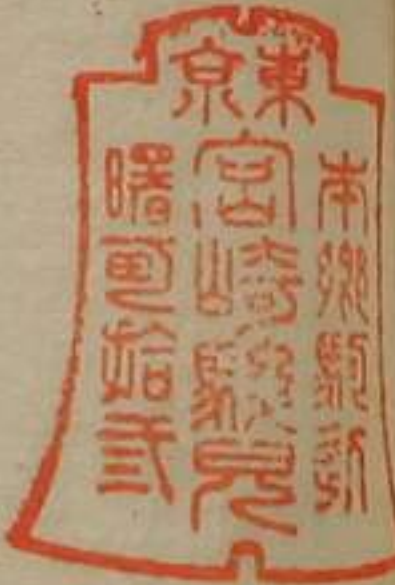 東京
本鄉駒込
宮崎駿兒
曙町拾弐